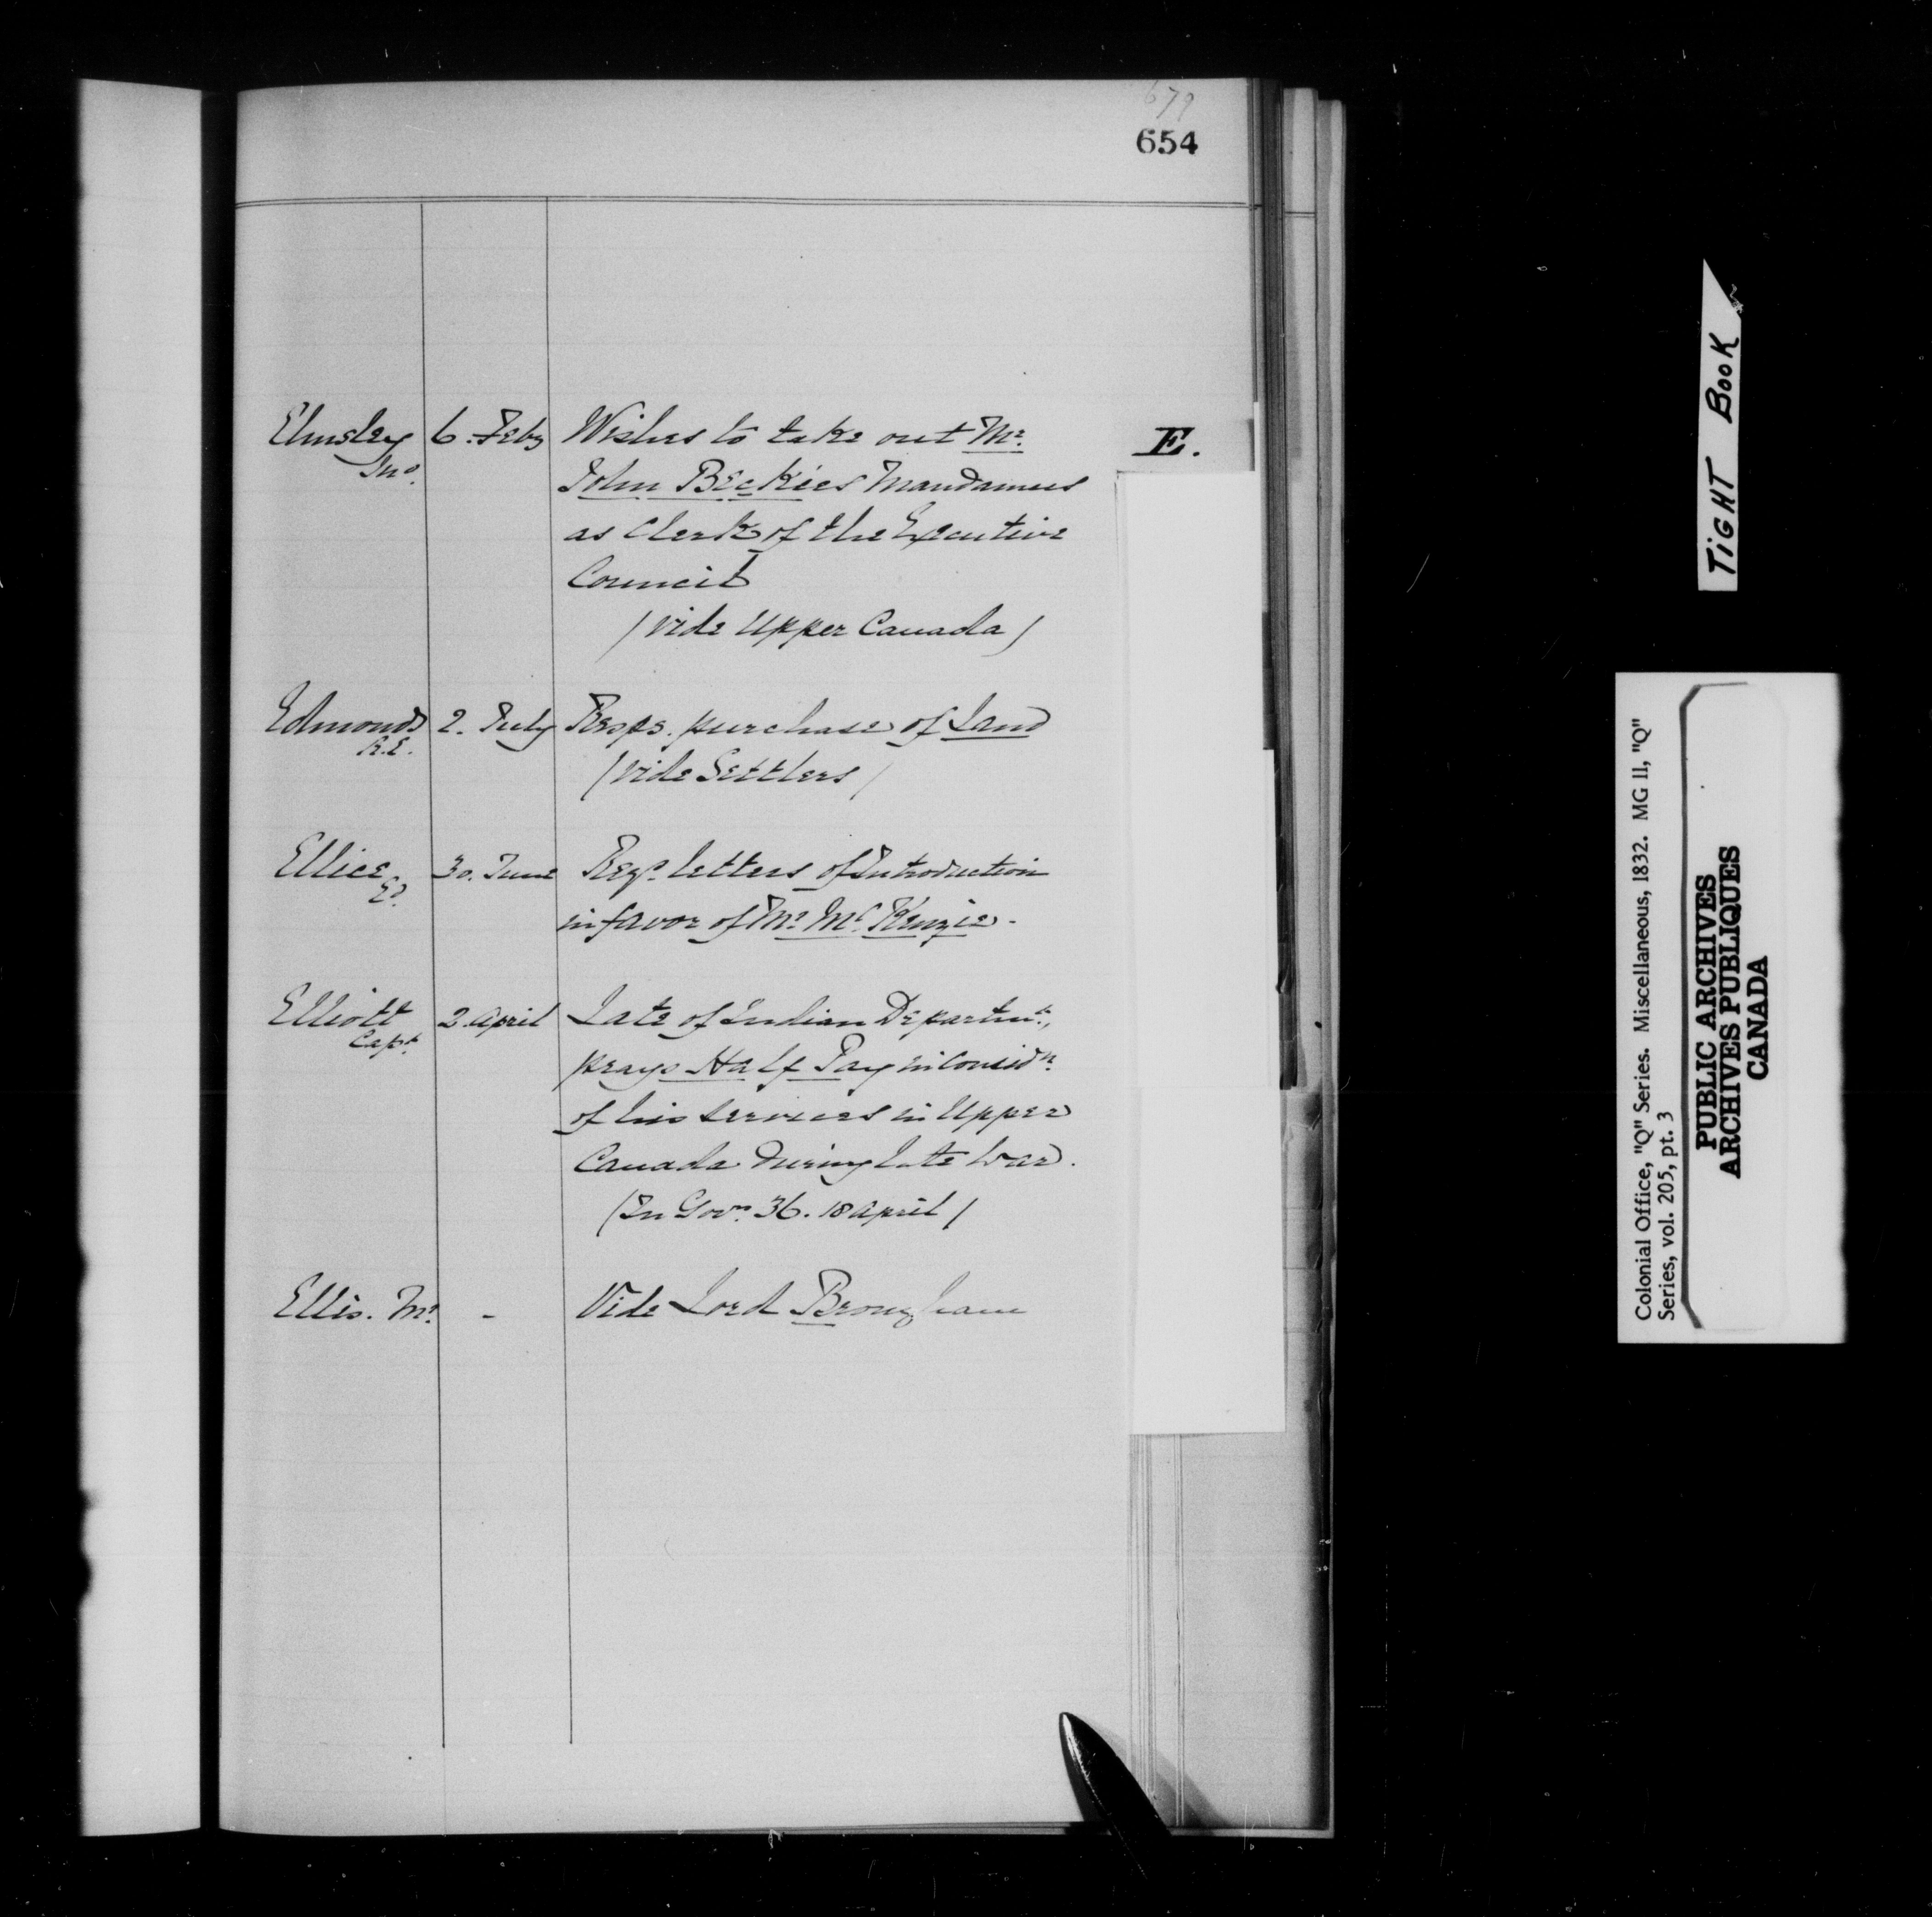 679
654
E.
Elmsley 6. Feby Wishes to take out Mr.
Jno. John Beckies Mandamus
as Clerk of the Executive
Council
/ Vide Upper Canada /
Edmonds 2. July Resps. purchase of Land
R.E. / Vide Settlers /
Ellice 30. June Reqs. letters of Introduction
Ed. in favor of Mr. Mc. Kenzie.
Elliott 2. April Late of Indian Departmt.,
Capt. prays Half Pay in Considn.
of his services in Upper
Canada during late War.
/ In Govr. 36. 18 April /
Ellis. Mr. - Vide Lord Brougham
TIGHT BOOK
Colonial Office, "Q" Series. Miscellaneous, 1832. MG 11, "Q"
Series, vol. 205, pt. 3
PUBLIC ARCHIVES
ARCHIVES PUBLIQUES
CANADA